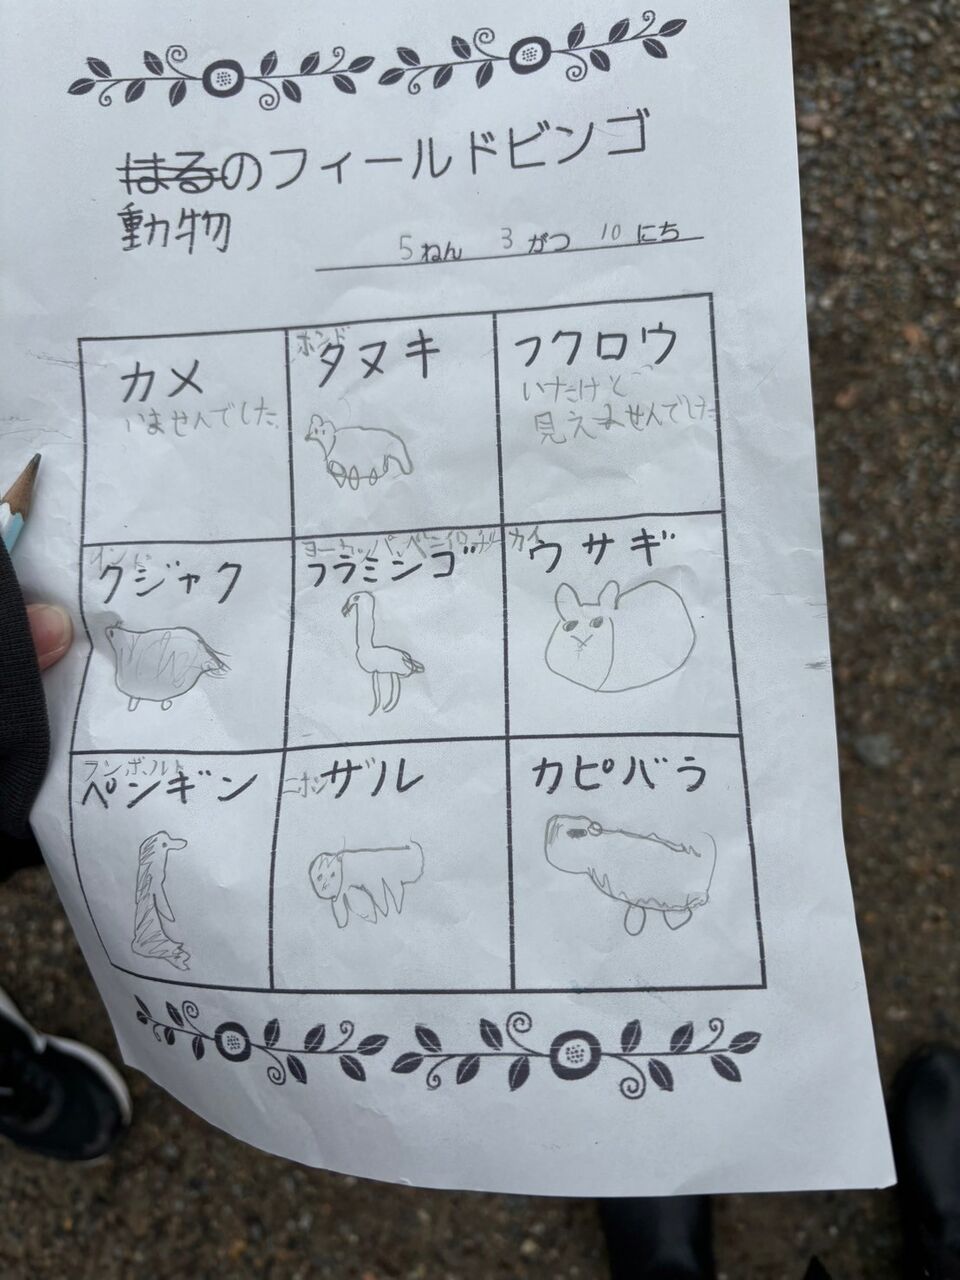 はるのフィールドビンゴ
動物
5ねん 3がつ 10にち
カメ
いませんでした。
ホンド
タヌキ
フクロウ
いたけど
見えませんでした
インド
クジャク
ヨーロッパベニイロ
フラミンゴ
カイ
ウサギ
フンボルト
ペンギン
ニホン
ザル
カピバラ